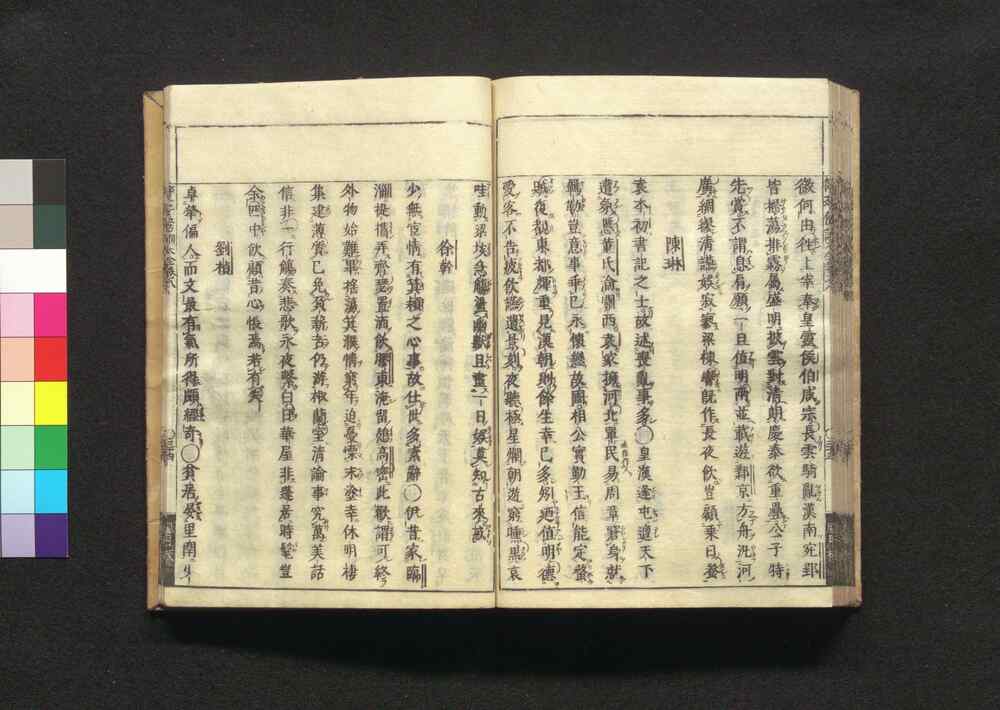 徵何由往上宰奉皇靈侯伯咸宗長雲騎亂漢南宛郢
皆掃蕩排霧屬盛明披雲對清朗慶泰欲重疊公子特
先賞不謂息肩願一旦值明兩並載遊鄴京方舟汎河
廣綢繆清讌娛寂寥梁棟響既作長夜飲豈顧乘日養
陳琳
袁本初書記之士故述喪亂事多○皇漢逢屯邅天下
遭氛慝董氏淪關西袁家擁河北單民易周章窘身就
羈勒豈意事乖已永懷戀故國相公實勤王信能定蝥
賊復覩東都輝重見漢朝則餘生幸已多矧迺值明德
愛客不告疲飲讌遺景刻夜聽極星爛朝遊窮曛黑哀
哇動梁埃急觴盪幽默且盡一日娛莫知古來惑
徐幹
少無宦情有箕潁之心事故仕世多素辭○伊昔家臨
淄提攜弄齊瑟置酒飲膠東淹留憩高密此歡謂可終
外物始難畢搖蕩箕濮情窮年迫憂慄末塗幸休明棲
集建薄質已免負薪苦仍游椒蘭室清論事究萬美話
信非一行觴奏悲歌永夜繫白日華屋非蓬居時髦豈
余匹中飲顧昔心悵焉若有失
劉楨
卓犖偏人而文最有氣所得頗經奇○貧居晏里閈少